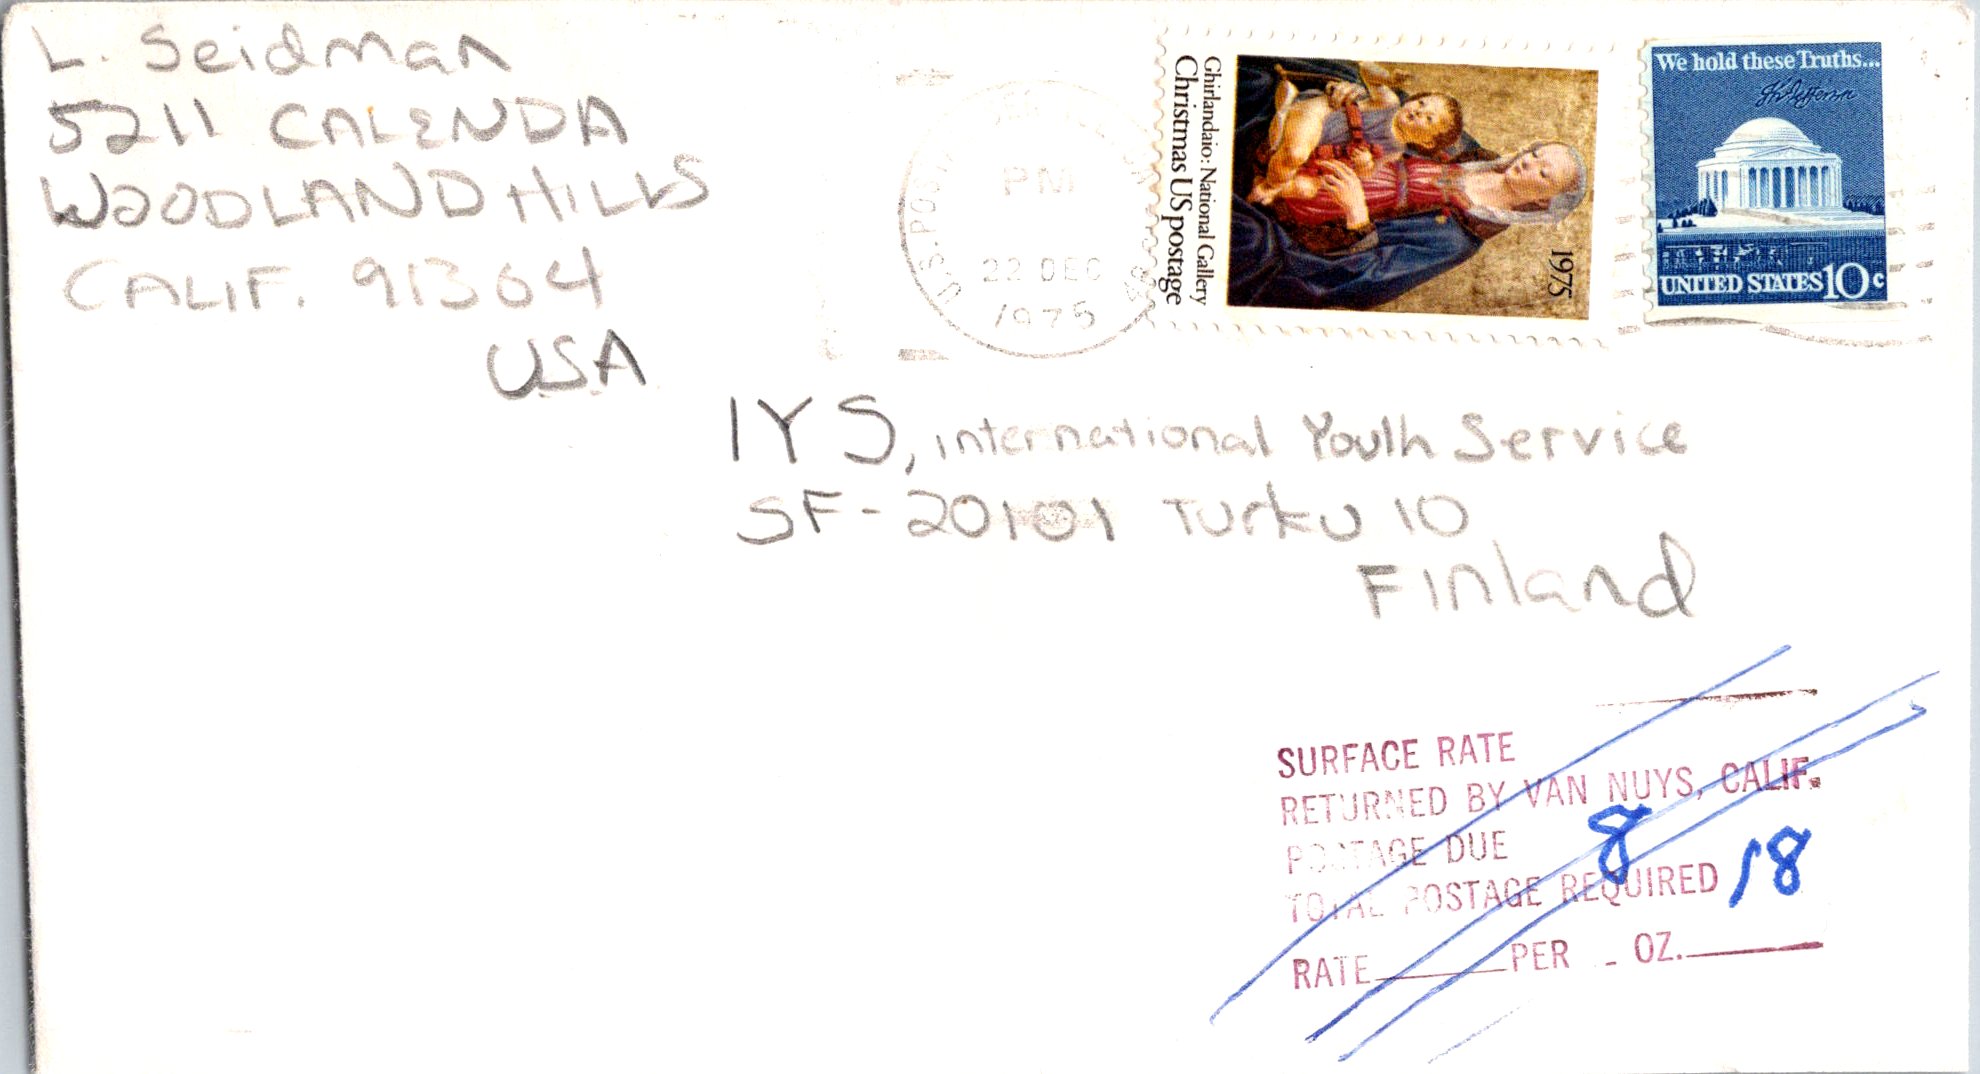 L. Seidman
5211 CALENDA
WOODLAND HILLS
CALIF. 91364
USA
U.S. POST
PM
22 DEC
1975
Ghirlandaio: National Gallery
Christmas US postage
1975
We hold these Truths...
Th Jefferson
UNITED STATES 10c
IYS, international Youth Service
SF-20101 Turku 10
Finland
SURFACE RATE
RETURNED BY VAN NUYS, CALIF.
POSTAGE DUE 8
TOTAL POSTAGE REQUIRED 18
RATE PER OZ.